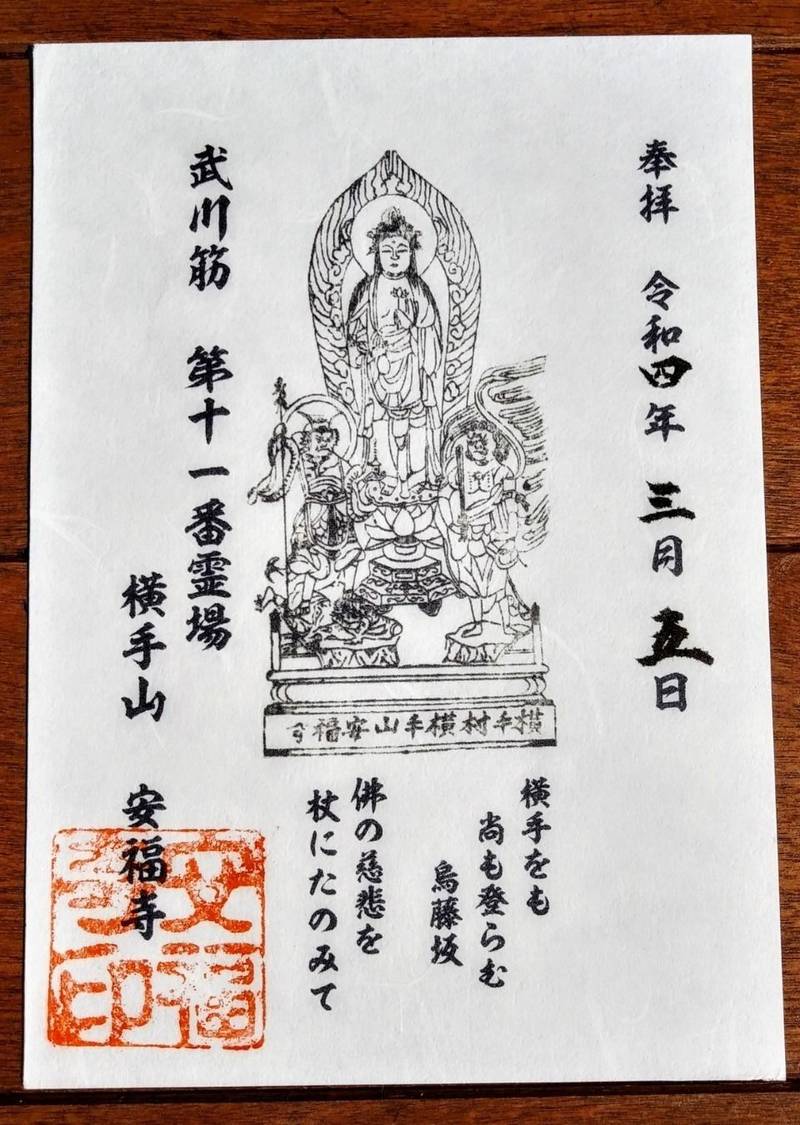 奉拝 令和四年 三月 五日
横手村横手山安福寺
横手をも
尚も登らむ
烏藤坂
佛の慈悲を
杖にたのみて
武川筋 第十一番霊場
横手山 安福寺
安福寺印